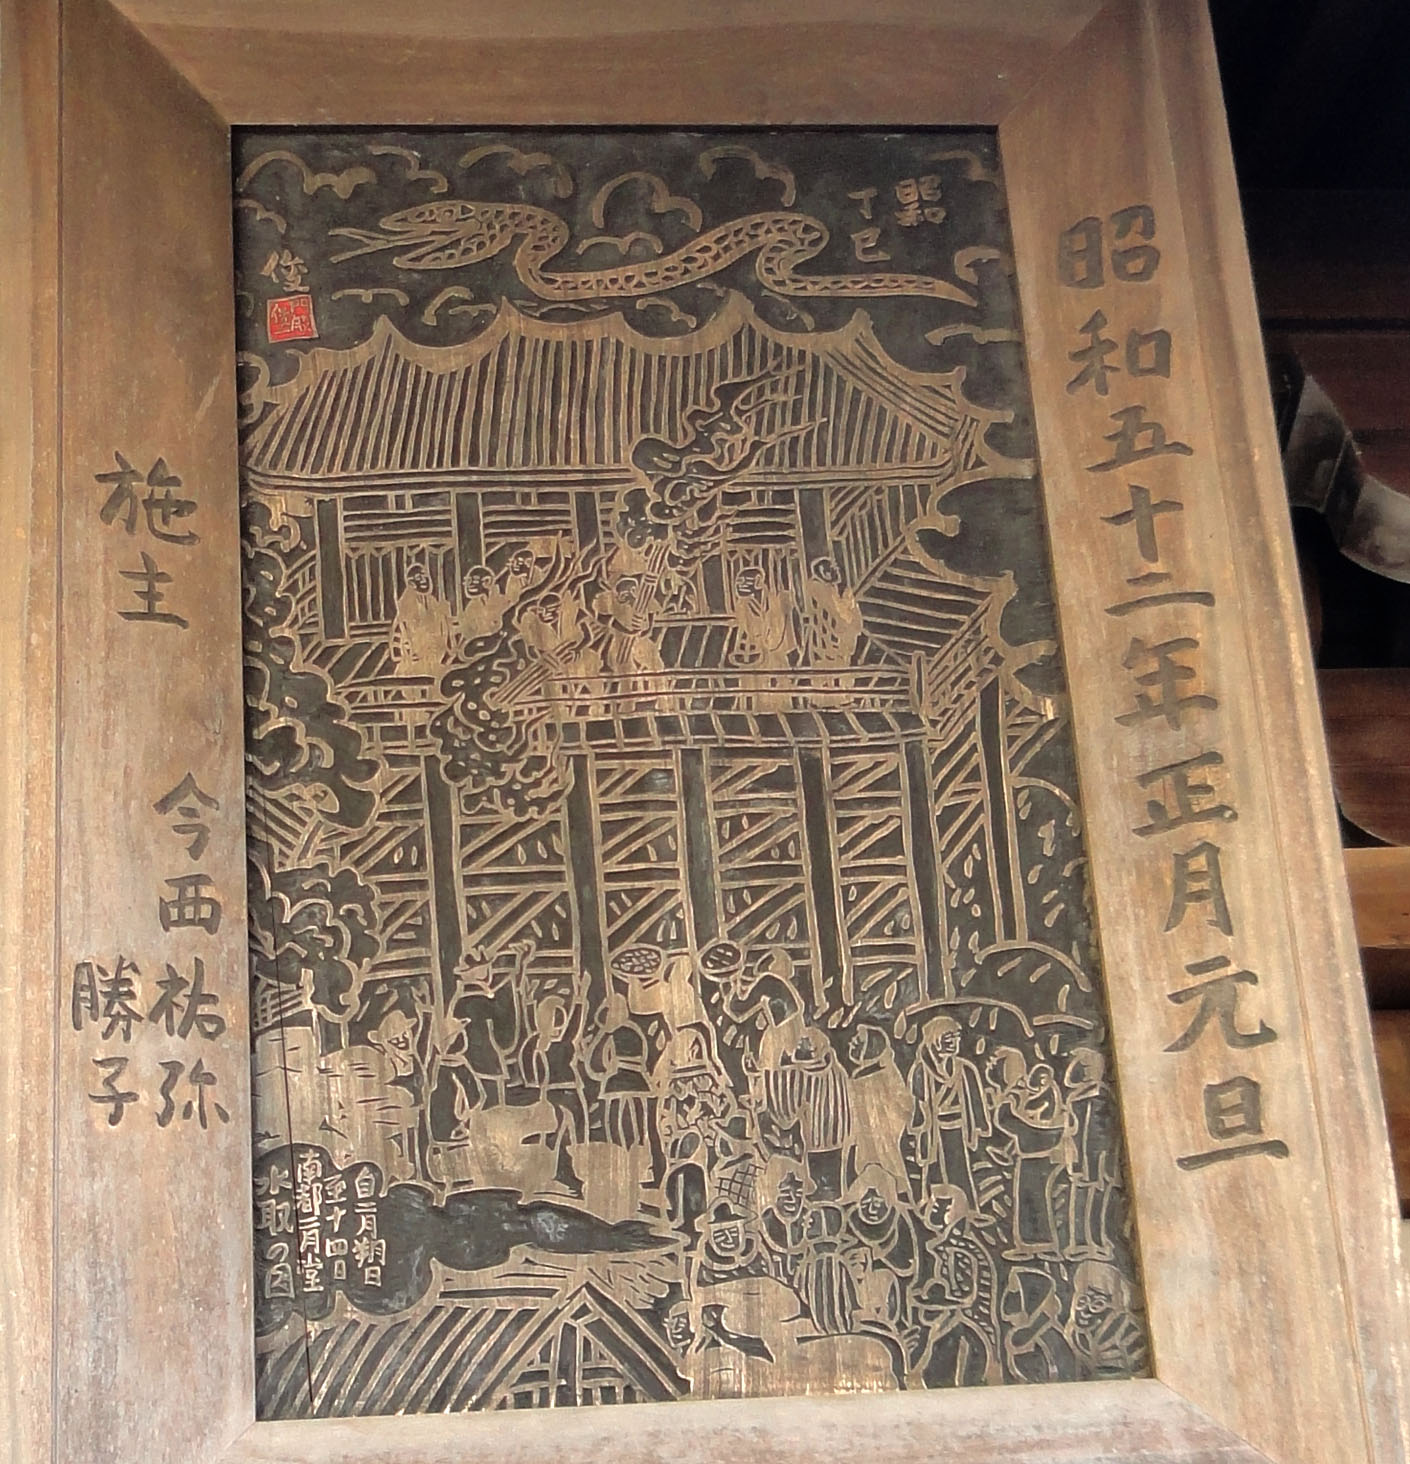 昭和五十二年正月元旦
昭和
丁巳
俊
自二月朔日
至十四日
南都二月堂
水取の図
施主
今西祐弥
勝子